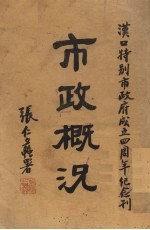 漢口特别市政府成立四周年紀念刊
市政概况
張仁蠡署